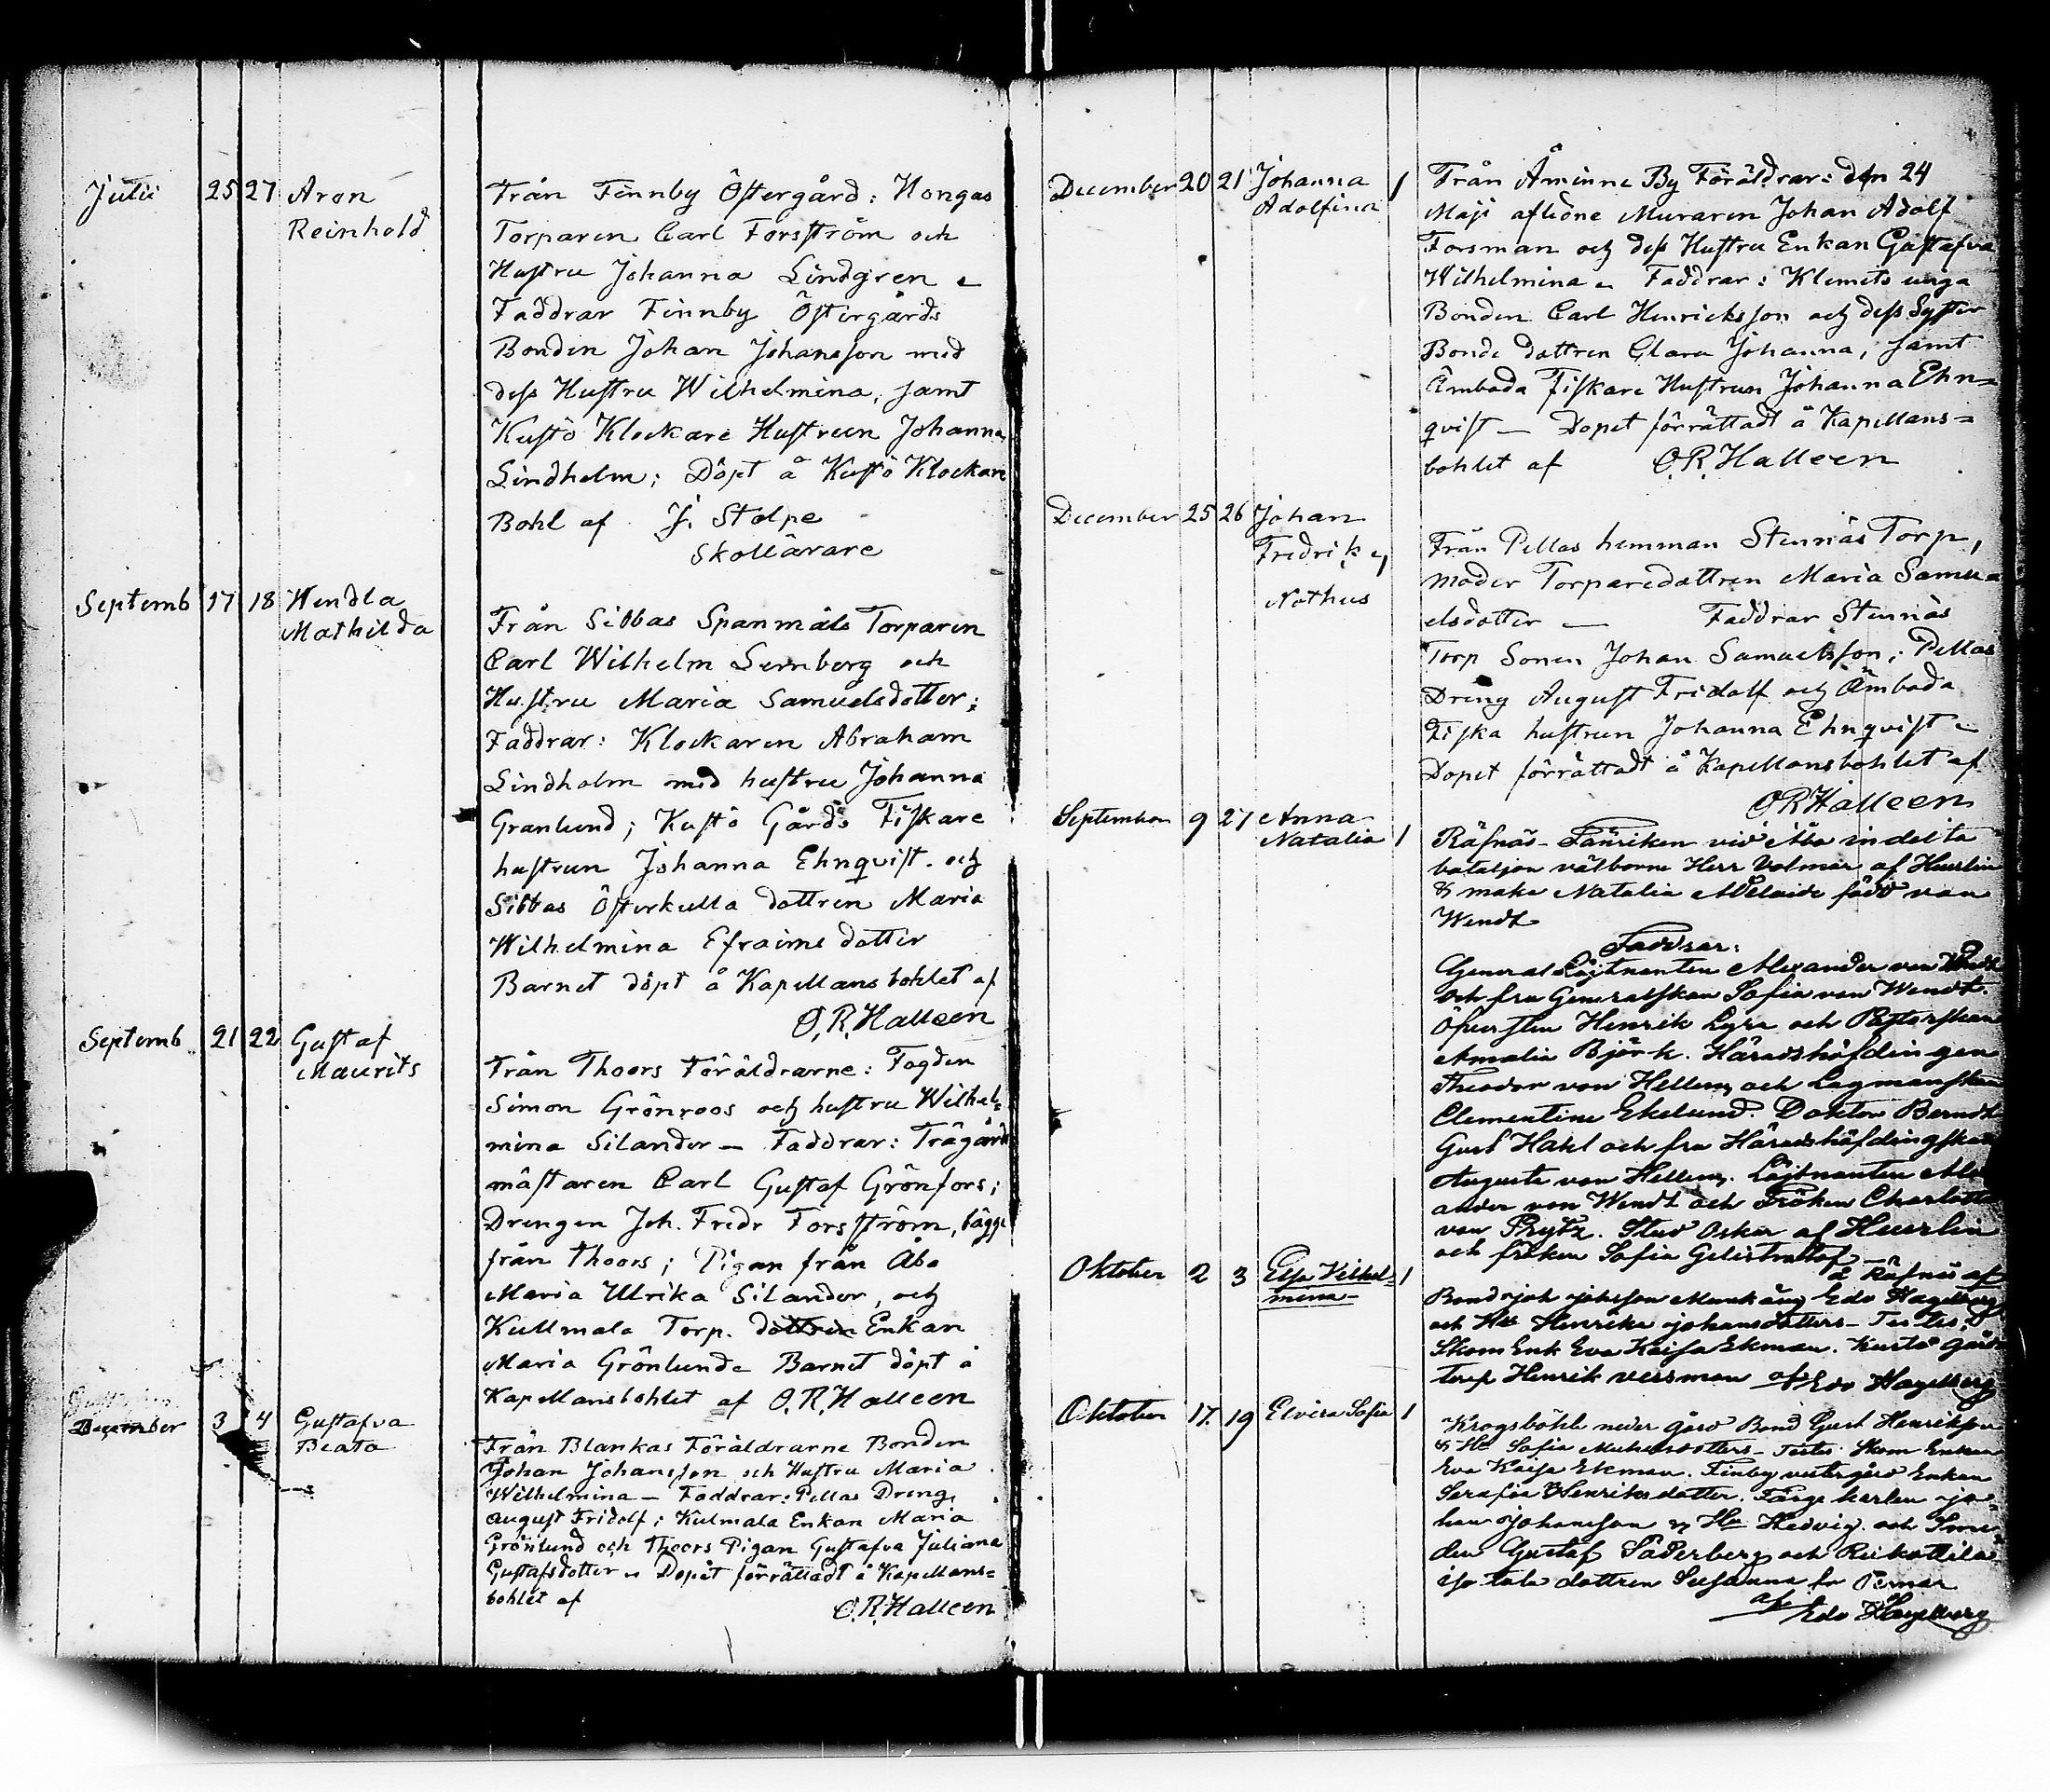 Julii 25 27 Aron
Reinhold
Från Finnby Östergård: Hongas
Torparen Carl Forsström och
Hustru Johanna Lindgren
Faddrar Finnby Östergårds
Bonden Johan Johansson med
dess Hustru Wilhelmina, samt
Kustö Klockare Hustrun Johanna
Lindholm; Döpt å Kustö Klockare
Bohl af J. Stolpe
Skollärare
Septemb 17 18 Hendla
Mathilda
Från Sibbas Spanmäls Torparen
Carl Wilhelm Lernberg och
Hustru Maria Samuelsdotter;
Faddrar: Klockaren Abraham
Lindholm med hustru Johanna
Granlund; Kustö Gårds Fiskare
hustrun Johanna Ehnqvist och
Sibbas Österkulla dottren Maria
Wilhelmina Efraims dotter
Barnet döpt å Kapellans bohlet af
O.R. Halleen
Septemb 21 22 Gustaf
Maurits
Från Thoors Föräldrarne: Fogden
Simon Grönroos och hustru Wilhel=
mina Silander — Faddrar: Trägårds
mästaren Carl Gustaf Grönfors;
Drengen Joh. Fredr Forsström, bägge
från Thoors; Pigan från Åbo
Maria Ulrika Silander, och
Kullmala Torp. dottren Enkan
Maria Grönlund Barnet döpt å
Kapellansbohlet af O.R. Halleen
December 3 4 Gustafva
Beata
Från Blankas Föräldrarne Bonden
Johan Johansson och Hustru Maria
Wilhelmina — Faddrar: Pellas Dreng
August Fridolf; Kulmala Enkan Maria
Grönlund och Thoors Pigan Gustafva Juliana
Gustafsdotter Dopet förrättadt å Kapellans=
bohlet af O.R. Halleen
December 20 21 Johanna 1
Adolfina
Från Åminne By Föräldrar: den 24
Maji aflidne Muraren Johan Adolf
Forsman och dess Hustru Enkan Gustafva
Wilhelmina Faddrar: Klemets unga
Bonden Carl Henricksson och dess Syster
Bonde dottren Clara Johanna, samt
Ämboda Fiskare Hustrun Johanna Ehn=
qvist — Dopet förrättadt å Kapellans=
bohlet af O.R. Halleen
December 25 26 Johan
Fredrik 1
Nothus
Från Pellas hemman Stennäs Torp,
moder Torparedottren Maria Samu=
elsdotter — Faddrar Stennäs
Torp Sonen Johan Samuelsson; Pellas
Dreng August Fridolf och Ämboda
Fiska hustrun Johanna Ehnqvist
Dopet förrättadt å Kapellansbohlet af
O R Halleen
September 9 27 Anna
Natalia 1
Räfnäs - Fänriken vid Åbo indelta
bataljon välborne Herr Volmar af Heurlin
& maka Natalia Adelaide född von
Wendt
Faddrar:
General Löjtnanten Alexander von Wendt
och fru Generalskan Sofia von Wendt.
Öfversten Henrik Lyra och Pastorskan
Amalia Björk. Häradshöfdingen
Theodor von Hellens och Lagmanskan
Clementine Ekelund. Doktor Berndt
Gust Hahl och fru Häradshöfdingskan
Augusta von Hellens. Löjtnanten Alex
ander von Wendt och Fröken Charlotta
von Phytz. Stud Oskar af Heurlin
och fröken Sofia
å Räfnäs af
Edv Hagelberg
Oktober 2 3 Elsa Vilhel= 1
mina
Bond Joh Johsson
och Hu Henrika Johansdotters - Testes:
Skom Enk Eva Kaisa Ekman. Kustö Gårds
torp Henrik af Edv Hagelberg
Oktober 17. 19 Elvira Sofia 1
Krogsböhle neder gård Bond Gust Henriksson
& Hu Sofia dotters - Testes: Skom Enkan
Eva Kaisa Ekman. Finby vestergård Enkan
Serafia Henriksdotter. Färge karlen Jo=
han Johansson & Hu Hedvig. och Sme=
den Gustaf Söderberg och
dottren Susanna fr Pemar
af Edv Hagelberg